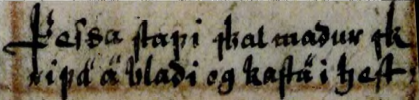 Þessa stapi skal madur sk
ripa a bladi og kasta i hest